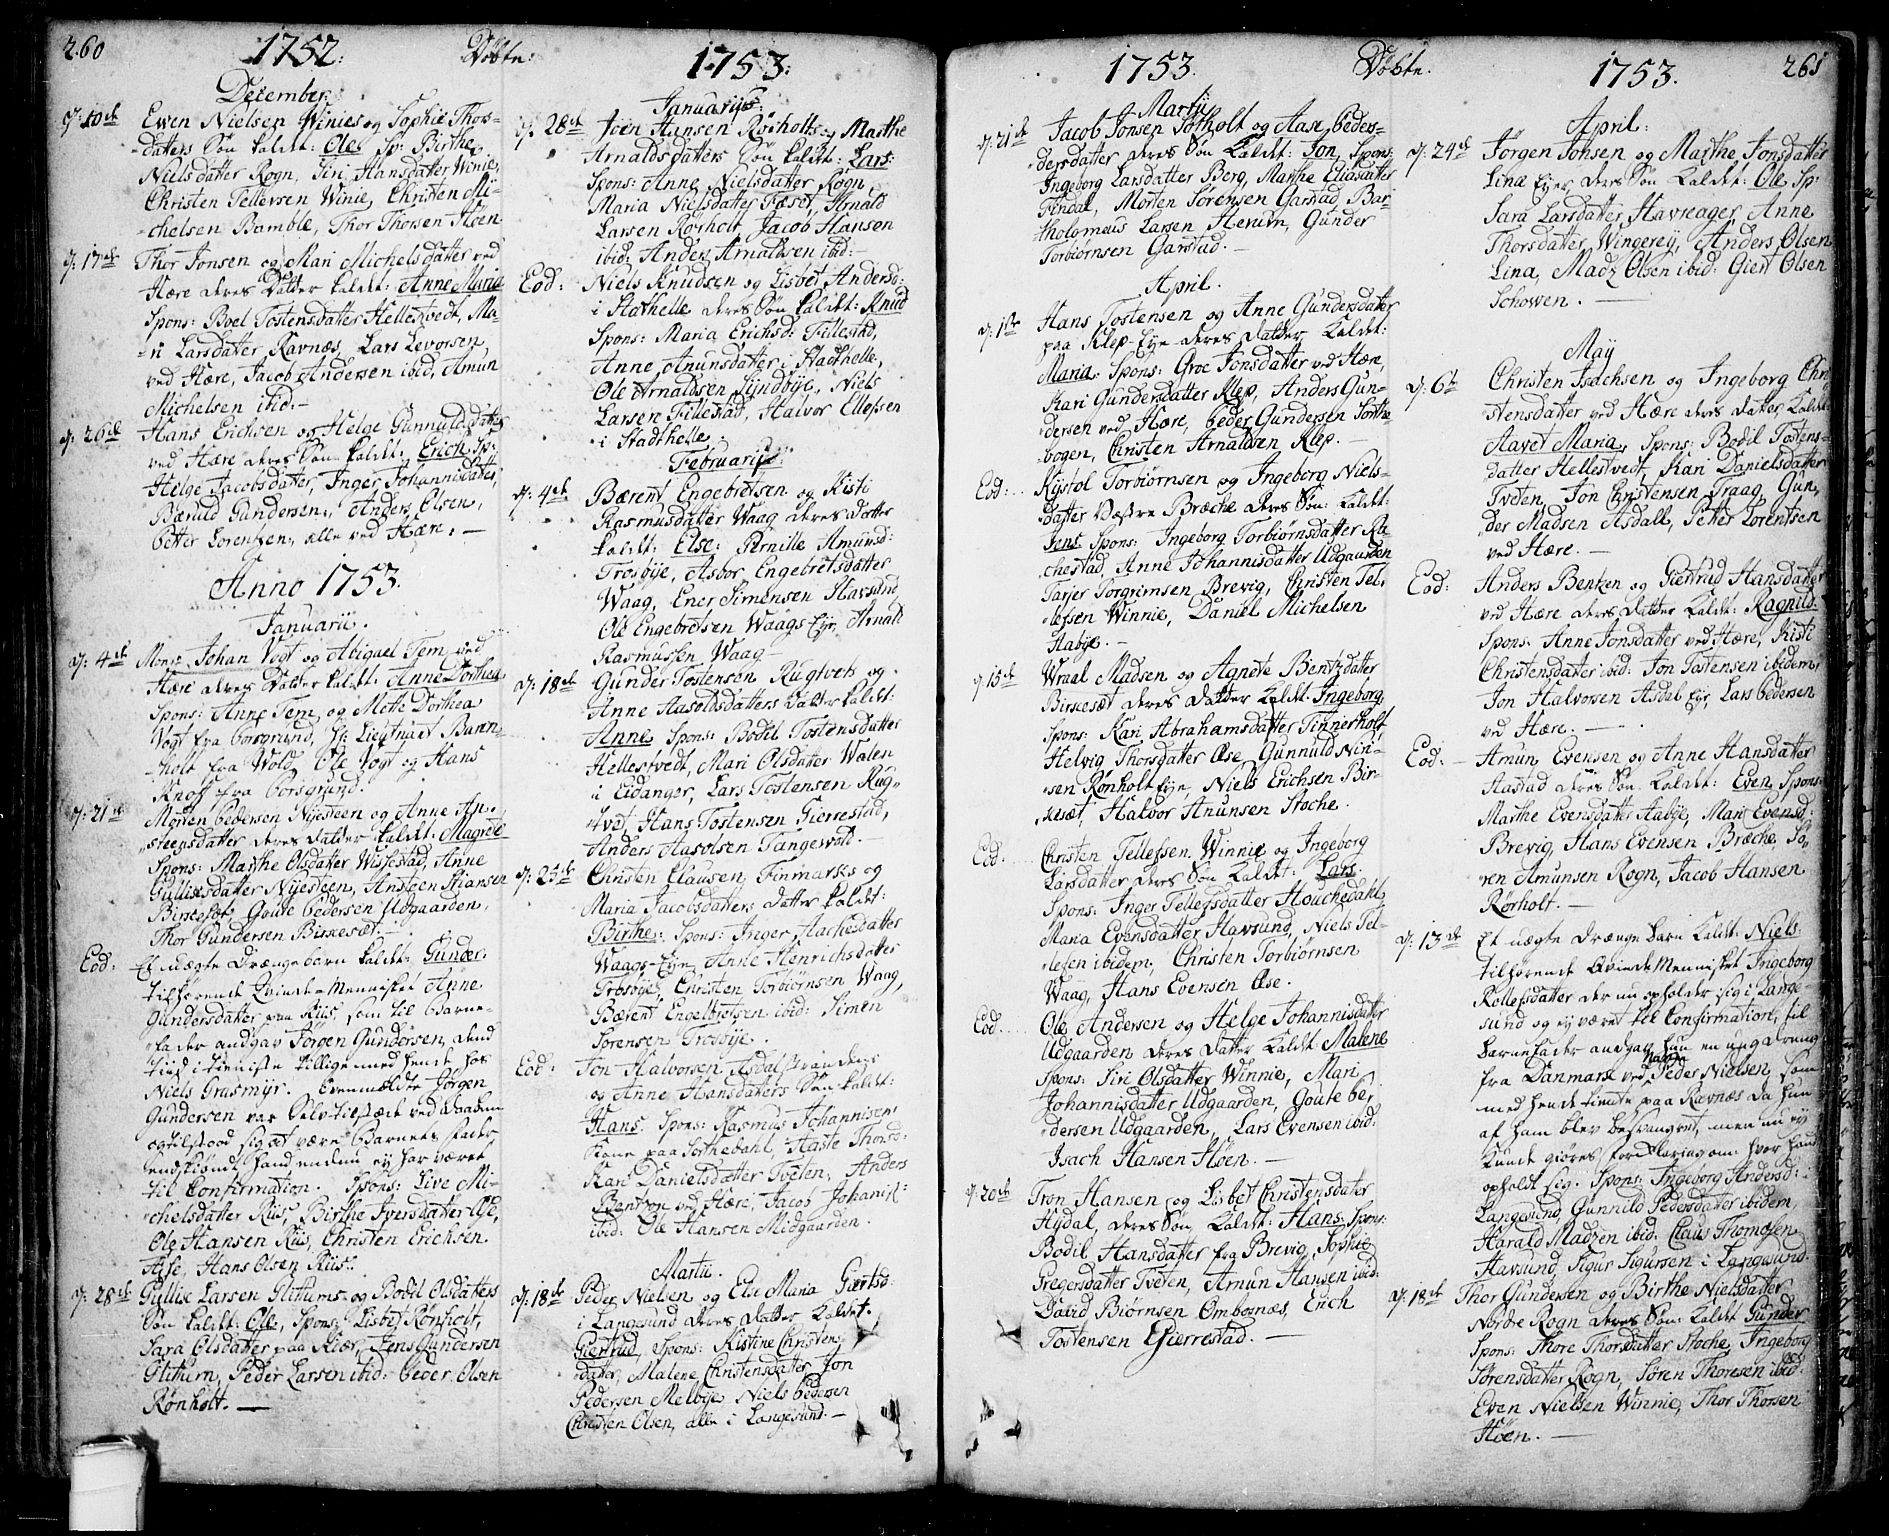 260
1752.
Döbte:
December.
d: 10de
Ewen Nielsen Winies og Sophie Thors-
datters Sön kaldt: Ole Sp: Birthe
Nielsdatter Rogn, Siri Hansdatter Winie,
Christen Tellevsen Winie, Christen Mi-
chelsen Bamble, Thor Thorsen Höen
d: 17de
Thor Jonsen og Mari Michelsdatter ved
Hære deres Datter kaldt: Anne Maria
Spons: Boel Tostensdatter Hellestvedt, Ma-
ri Larsdatter Ravnæs, Lars Levorsen
ved Hære, Jacob Andersen ibid, Amun
Michelsen ibid:-
d: 26de
Hans Erichsen og Helge Gunnulddatter
ved Hære deres Sön kaldt: Erich Sp:
Helge Jacobsdatter, Inger Johannisdatter,
Bæruld Gundersen, Anders Olsen,
Petter Lorentzen, alle ved Hære. —
Anno 1753.
Januarii.
d: 4de
Monsr Johan Vogt og Abigael Tem ved
Hære deres Datter kaldt: Anne Dorthea
Spons: Anne Tem og Mette Dorthea
Vogt fra Porsgrund, Hr: Lieutnant Bann-
holt fra Wold, Ole Vogt og Hans
Knoff fra Porsgrund.
d: 21de
Morten Pedersen Nijesteen og Anne An-
steensdatter deres datter kaldt: Magrete
Spons: Marthe Olsdatter Wissestad, Anne
Gullixsdatter Nijesteen, Ansteen Stiansen
Birkesæt, Goute Pedersen Udgaarden,
Thor Gundersen Birkesæt. —
Eod:
Et uægte Drængebarn kaldt: Gunder:
tilhörende Qvinde-Mennisket Anne
Gundersdatter paa Riis, som til Barne-
fader andgav Jörgen Gundersen, dend
tiid i tieniste tillige med hende hos
Niels Grasmyr. Evenmældte Jörgen
Gundersen var Selv tilstæde ved Daaben
og tilstood sig at være Barnets Fader
endskiöndt hand endnu ey har været
til Confirmation. Spons: Live Mi-
chelsdatter Riis, Birthe Iversdatter Öse,
Ole Hansen Riis, Christen Erichsen
Hafse, Hans Olsen Riis.
d: 28de
Gullix Larsen Flithums og Bodil Olsdatters
Sön kaldt: Ole, Spons: Lisbet Rönholt,
Sara Olsdatter paa Kiær, Jens Gundersen
Flithum, Peder Larsen ibid: Peder Olsen
Rönholt. —
1753.
Januarius.
d: 28de
Joen Hansen Rörholts og Marthe
Arnaldsdatters Sön kaldt: Lars:
Spons: Anne Nielsdatter Rogn,
Maria Nielsdatter Fæset, Arnald
Larsen Rörholt, Jacob Hansen
ibid: Anders Arnaldsen ibid:
Eod:
Niels Knudsen og Lisbet Andersd:
i Stathelle deres Sön kaldt: Knud
Spons: Maria Erichsd: Fillestad,
Anne Anunsdatter i Stadthelle,
Ole Arnaldsen Syndböe, Niels
Larsen Fillestad, Halvor Ellefsen
i Stadthelle.
Februarius.
d: 4de
Bærent Engebretsen og Kisti
Rasmusdatter Waag deres Datter
kaldt: Else: Pernille Amunsd:
Trosbye, Asbor Engebretsdatter
Waag, Ener Simensen Havsund,
Ole Engebretsen Waags-Eye, Arnald
Rasmussen Waag —
d: 18de
Gunder Tostensen Rugtveds og
Anne Aasoldsdatters Datter kaldt:
Anne Spons: Bodil Tostensdatter
Hellestvedt, Mari Olsdatter Walen
i Eidanger, Lars Tostensen Rug-
tvet, Hans Tostensen Gierrestad,
Anders Aasolsen Tangevold.
d: 25de
Christen Clausen Finmarks og
Maria Jacobsdatters datter kaldt:
Birthe: Spons: Inger Aachesdatter
Waags-Eye, Anne Henrichsdatter
Trosbye, Christen Torbiörnsen Waag,
Bærent Engelbretsen ibid: Simen
Sörensen Trosbye.
Eod:
Jon Halvorsen Asdalstrandens
og Anne Hansdatters Sön kaldt:
Hans: Spons: Rasmus Johannisens
Kone paa Sorthedahl, Haste Thorsd:
Kari Danielsdatter Tveten, Anders
Bentsen ved Hære, Jacob Johanis:
ibid: Ole Hansen Midgaarden.
Martii.
d: 18de
Peder Nielsen og Else Maria Giertsd:
i Langesund deres Datter kaldet:
Giertrud, Spons: Kistine Christens-
datter, Malene Christensdatter, Jon
Pedersen Melbye, Niels Pedersen
Christen Olsen, alle i Langesund. —
1753.
Döbte.
Martij
d: 21de
Jacob Jonsen Sotholt og Aase Peders-
dersdatter deres Sön kaldet: Jon, Spons:
Ingeborg Larsdatter Berg, Marthe Eliasdatter
Findal, Morten Sörensen Garstad, Bar-
tholomeus Larsen Herum, Gunder
Torbiörnsen Garstad. —
April.
d: 1ste
Hans Tostensen og Anne Gundersdatter
paa Klep-Eye deres datter kaldet:
Maria. Spons: Groe Jonsdatter ved Hære,
Kari Gundersdatter Klep, Anders Gun-
dersen ved Hære, Peder Gundersen Torthe
bogen, Christen Arnaldsen Klep. —
Eod:
Kystol Torbiörnsen og Ingeborg Niels-
datter Vestre Bræche deres Sön: kaldet:
Jens Spons: Ingeborg Torbiörnsdatter Ra
chestad, Anne Johannisdatter Udgaarden
Tarjer Torgrimsen Brevig, Christen Tel-
lefsen Winnie, Daniel Michelsen
Aabye. —
d 15de
Wraal Madsen og Agnete Bentzdatter
Birkesæt deres datter kaldet Ingeborg,
Spons: Kari Abrahamsdatter Tinnerholt,
Helvig Thorsdatter Öse, Gunnuld Nir-
sen Rönholt Eye, Niels Erichsen Bir-
kesæt, Halvor Anunsen Stoche.
Eod:
Christen Tellefsen Winnie og Ingeborg
Larsdatter deres Sön kaldet: Lars.
Spons: Inger Tellefsdatter Houchedahl
Maria Evensdatter Havsund, Niels Tel-
lefsen ibidem, Christen Torbiörnsen
Waag, Hans Evensen Öse.
Eod:
Ole Andersen og Helge Johannisdatter
Udgaarden deres datter kaldet Malene
Spons: Siri Olsdatter Winnie, Mari
Johannisdatter Udgaarden, Goute Pe,
dersen Udgaarden, Lars Evensen ibid:
Isach Hansen Höen. —
d: 20de
Tron Hansen og Lisbet Christensdatter
Hydal, deres Sön kaldet: Hans. Spons:
Bodil Hansdatter fra Brevig, Sophie
Gregersdatter Tveten, Amun Hansen ibid:
David Biörnsen Ombornæs, Erich
Tostensen Gierrestad. —
1753.
261
April:
d: 24de
Jörgen Jonsen og Marthe Jonsdatter
Lina Eye, deres Sön kaldet: Ole Sp:
Sara Larsdatter Havreager, Anne
Thorsdatter Wingerey, Anders Olsen
Lina, Madz Olsen ibid: Giert Olsen
Schowen. —
May
d: 6te
Christen Isachsen og Ingeborg Chri-
stensdatter ved Hære deres datter kaldet
Aavet Maria, Spons: Bodil Tostens-
datter Hellestvedt, Kari Danielsdatter
Tveten, Jon Christensen Traag, Gun,
der Madsen Asdall, Petter Lorentsen
ved Hære. —
Eod:
Anders Bentsen og Giertrud Hansdatter
ved Hære deres datter kaldet: Ragnild.
Spons: Anne Jonsdatter ved Hære, Kisti
Christensdatter ibid: Jon Tostensen ibidem,
Jon Halvorsen Asdal Eye, Lars Pedersen
ved Hære. —
Eod:
Amun Evensen og Anne Hansdatter
Aastad deres Sön kaldet: Even, Spons:
Marthe Evensdatter Aabye, Mari Evensd:
Brevig, Hans Evensen Bræche, Sö,
ren Amunsen Rogn, Jacob Hansen
Rörholt. —
d: 13de
Et uægte Drænge barn kaldt: Niels:
tilhörende Qvinde Mennisket Ingeborg
Rollefsdatter der nu opholder sig i Lange-
sund og ey været til Confirmation, til
Barnefader andgav hun en ung Dreng
fra Danmark ved Nafn Peder Nielsen, som
med hende tiente paa Ravnæs da hun
af ham blev besvangret, men nu ey
kunde giöres forklaring om hvor hand
opholdt sig. Spons: Ingeborg Andersd: i
Langesund, Gunnild Pedersdatter ibidem,
Harald Madzen ibid: Claus Thomesen
Havsund, Sigur Sigursen i Langesund.
d: 18de
Thor Gundersen og Birthe Nielsdatter
Nordre Rogn deres Sön kaldet Gunder
Spons: Thore Thorsdatter Stoche, Ingeborg
Sörensdatter Rogn, Sören Thoresen ibid:
Even Nielsen Winnie, Thor Thorsen
Höen. —